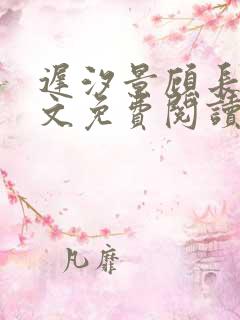 遲汐景顧長
文免費閱讀
凡靡